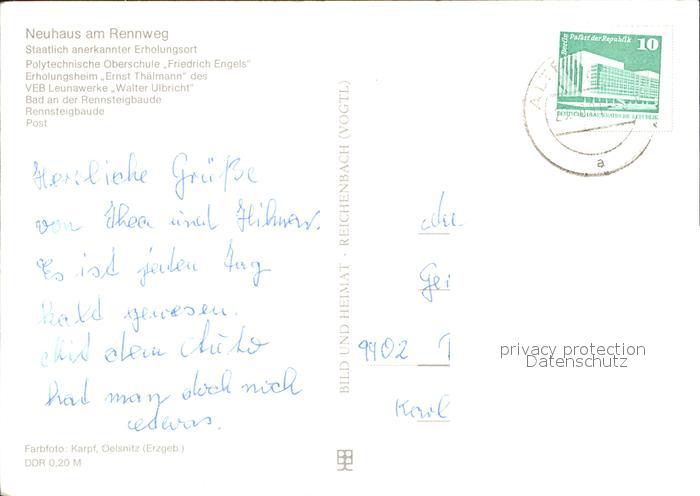 Neuhaus am Rennweg
Staatlich anerkannter Erholungsort
Polytechnische Oberschule „Friedrich Engels“
Erholungsheim „Ernst Thälmann“ des
VEB Leunawerke „Walter Ulbricht“
Bad an der Rennsteigbaude
Rennsteigbaude
Post
Herzliche Grüße
von Thea und Hilmar.
Es ist jeden Tag
kalt gewesen.
Mit dem Auto
hat man doch noch
etwas.
Farbfoto: Karpf, Oelsnitz (Erzgeb.)
DDR 0,20 M
BILD UND HEIMAT · REICHENBACH (VOGTL)
Berlin Palast der Republik
10
DEUTSCHE DEMOKRATISCHE REPUBLIK
ALTE
a
Gei
9402
Karl
privacy protection
Datenschutz